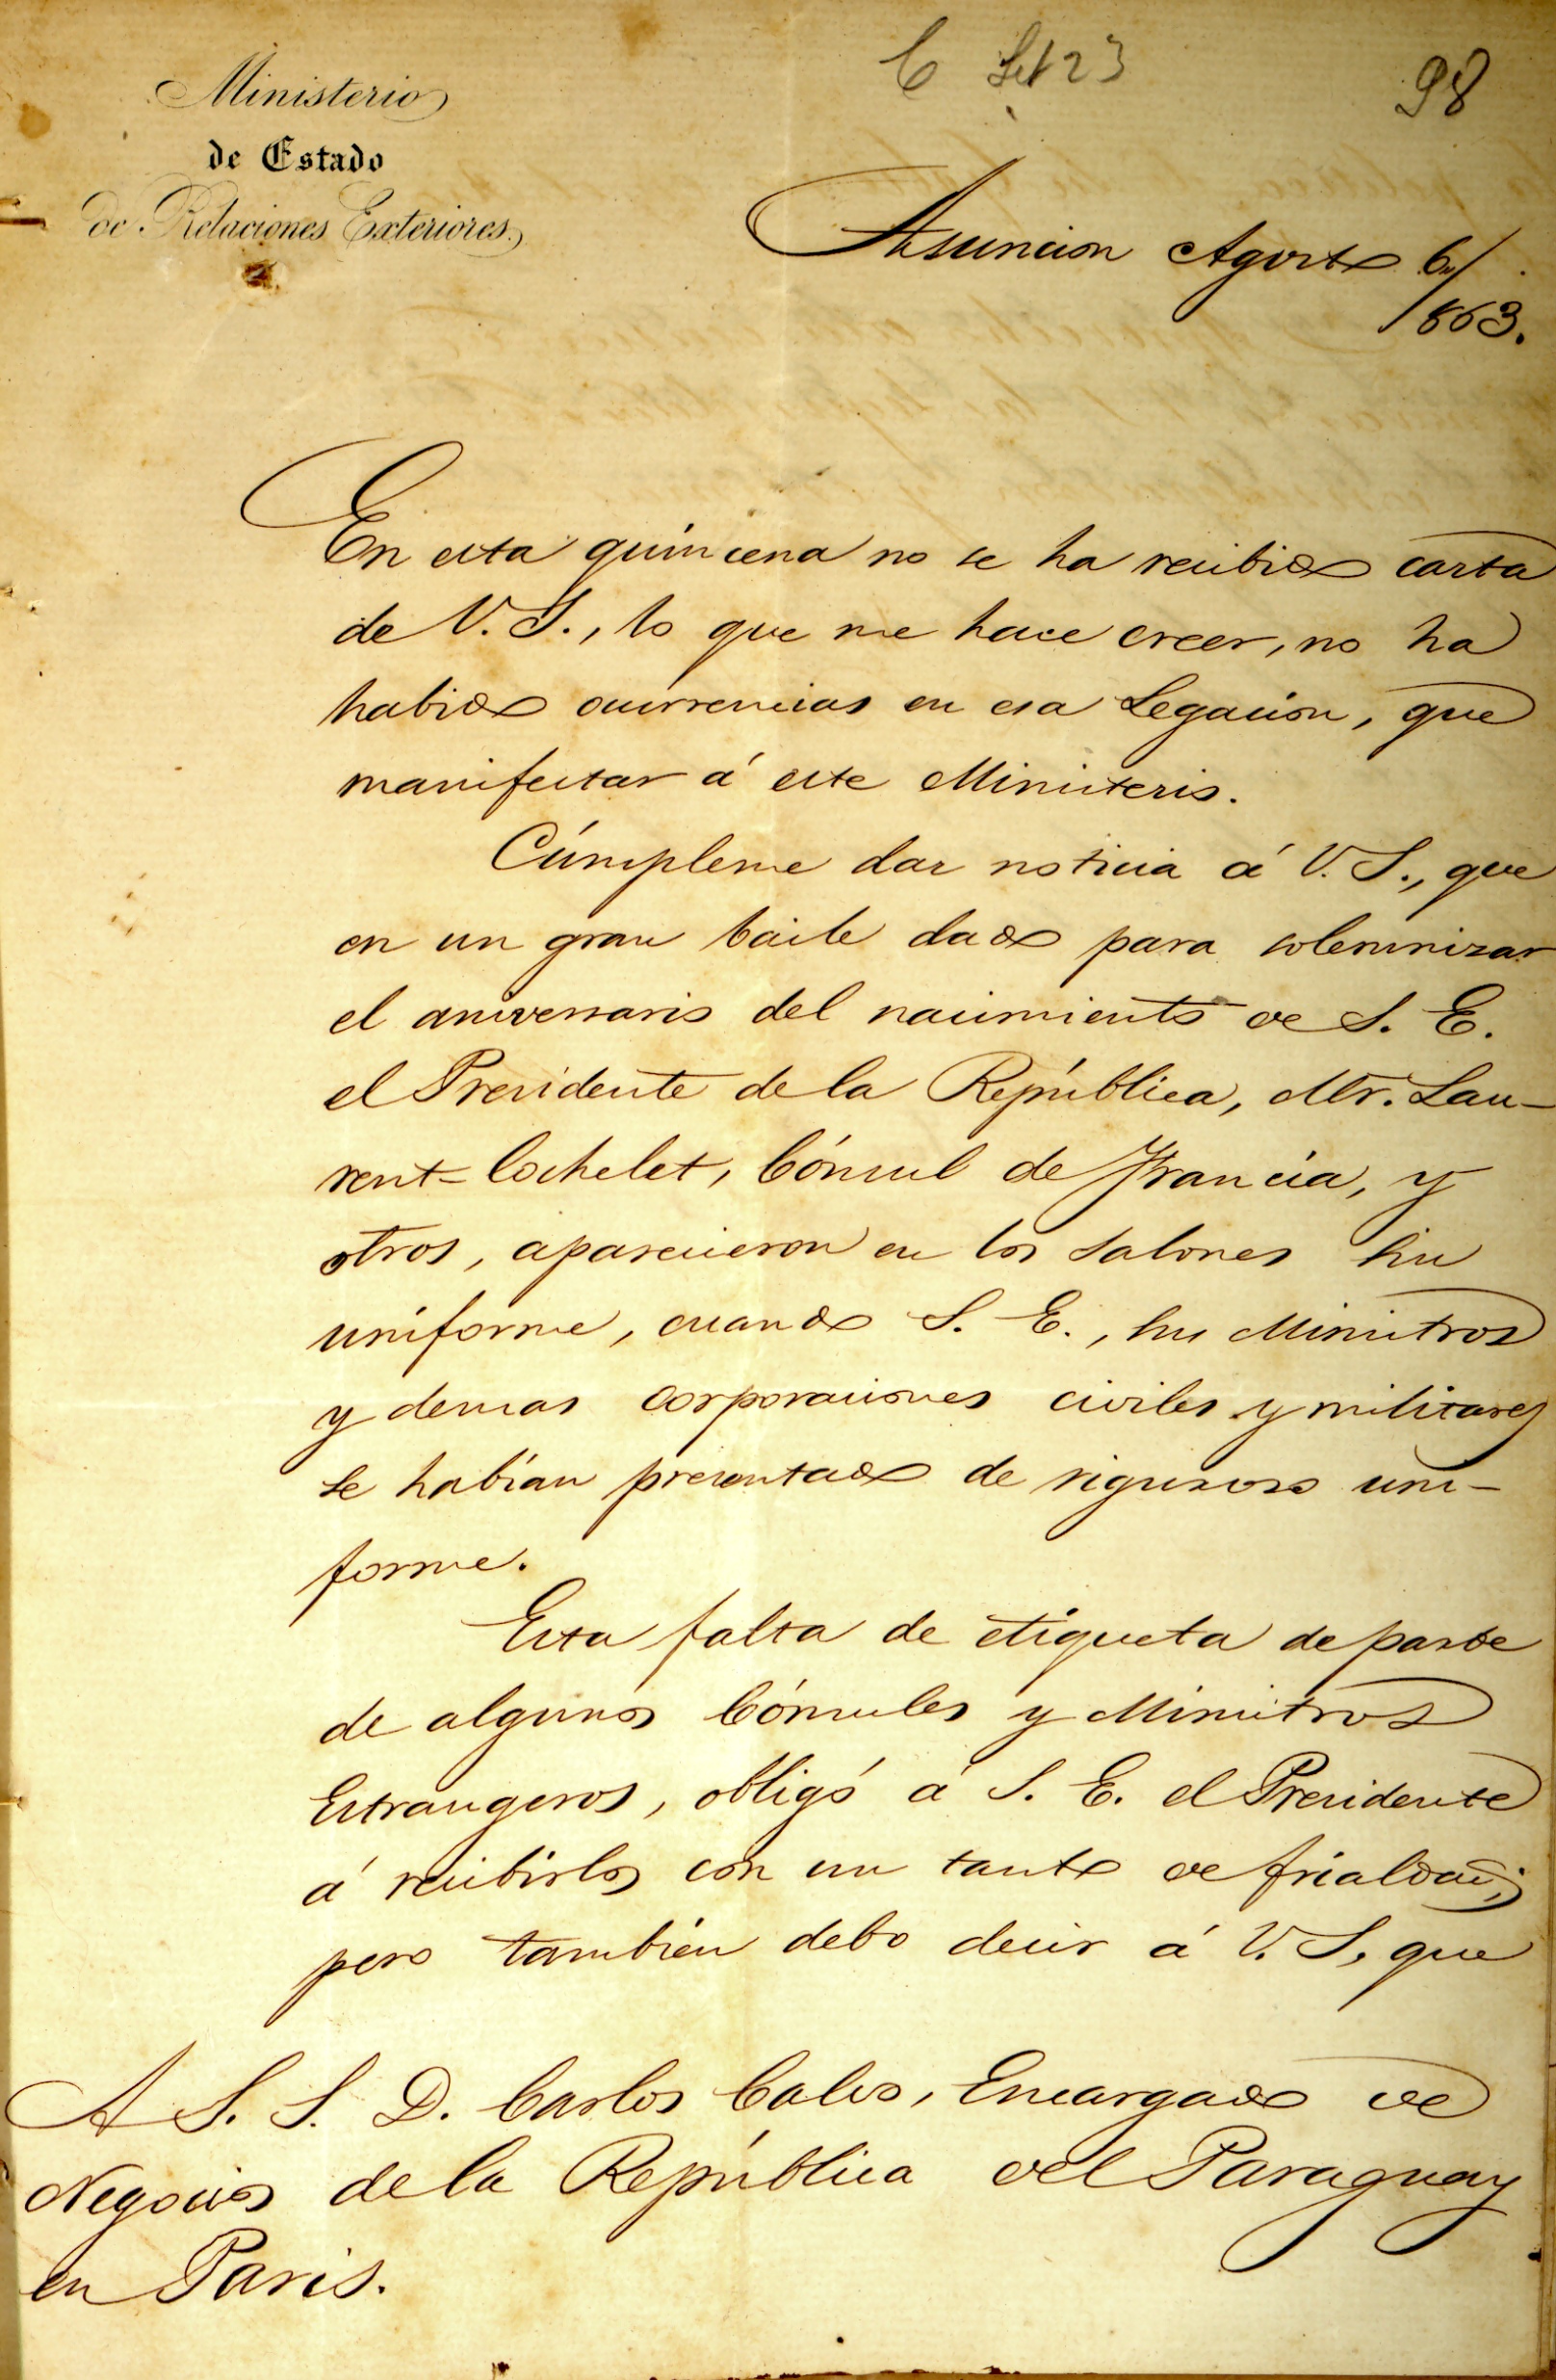 C Set 23
98
Ministerio
de Estado
de Relaciones Exteriores.
Asuncion Agosto 6,,/
1863.
En esta quincena no se ha recibido carta
de V. S., lo que me hace creer, no ha
habido ocurrencias en esa Legacion, que
manifestar á este Ministerio.
Cúmpleme dar noticia á V. S., que
en un gran baile dado para solemnizar
el aniversario del nacimiento de S. E.
el Presidente de la República, Mr. Lau-
rent-Cochelet, Cónsul de Francia, y
otros, aparecieron en los salones sin
uniforme, cuando S. E., sus Ministros
y demas corporaciones civiles y militares
se habían presentado de riguroso uni-
forme.
Esta falta de etiqueta de parte
de algunos Cónsules y Ministros
Estrangeros, obligó á S. E. el Presidente
á recibirlos con un tanto de frialdad;
pero también debo decir á V. S, que
A S. S. D. Carlos Calvo, Encargado de
Negocios de la República del Paraguay
en Paris.